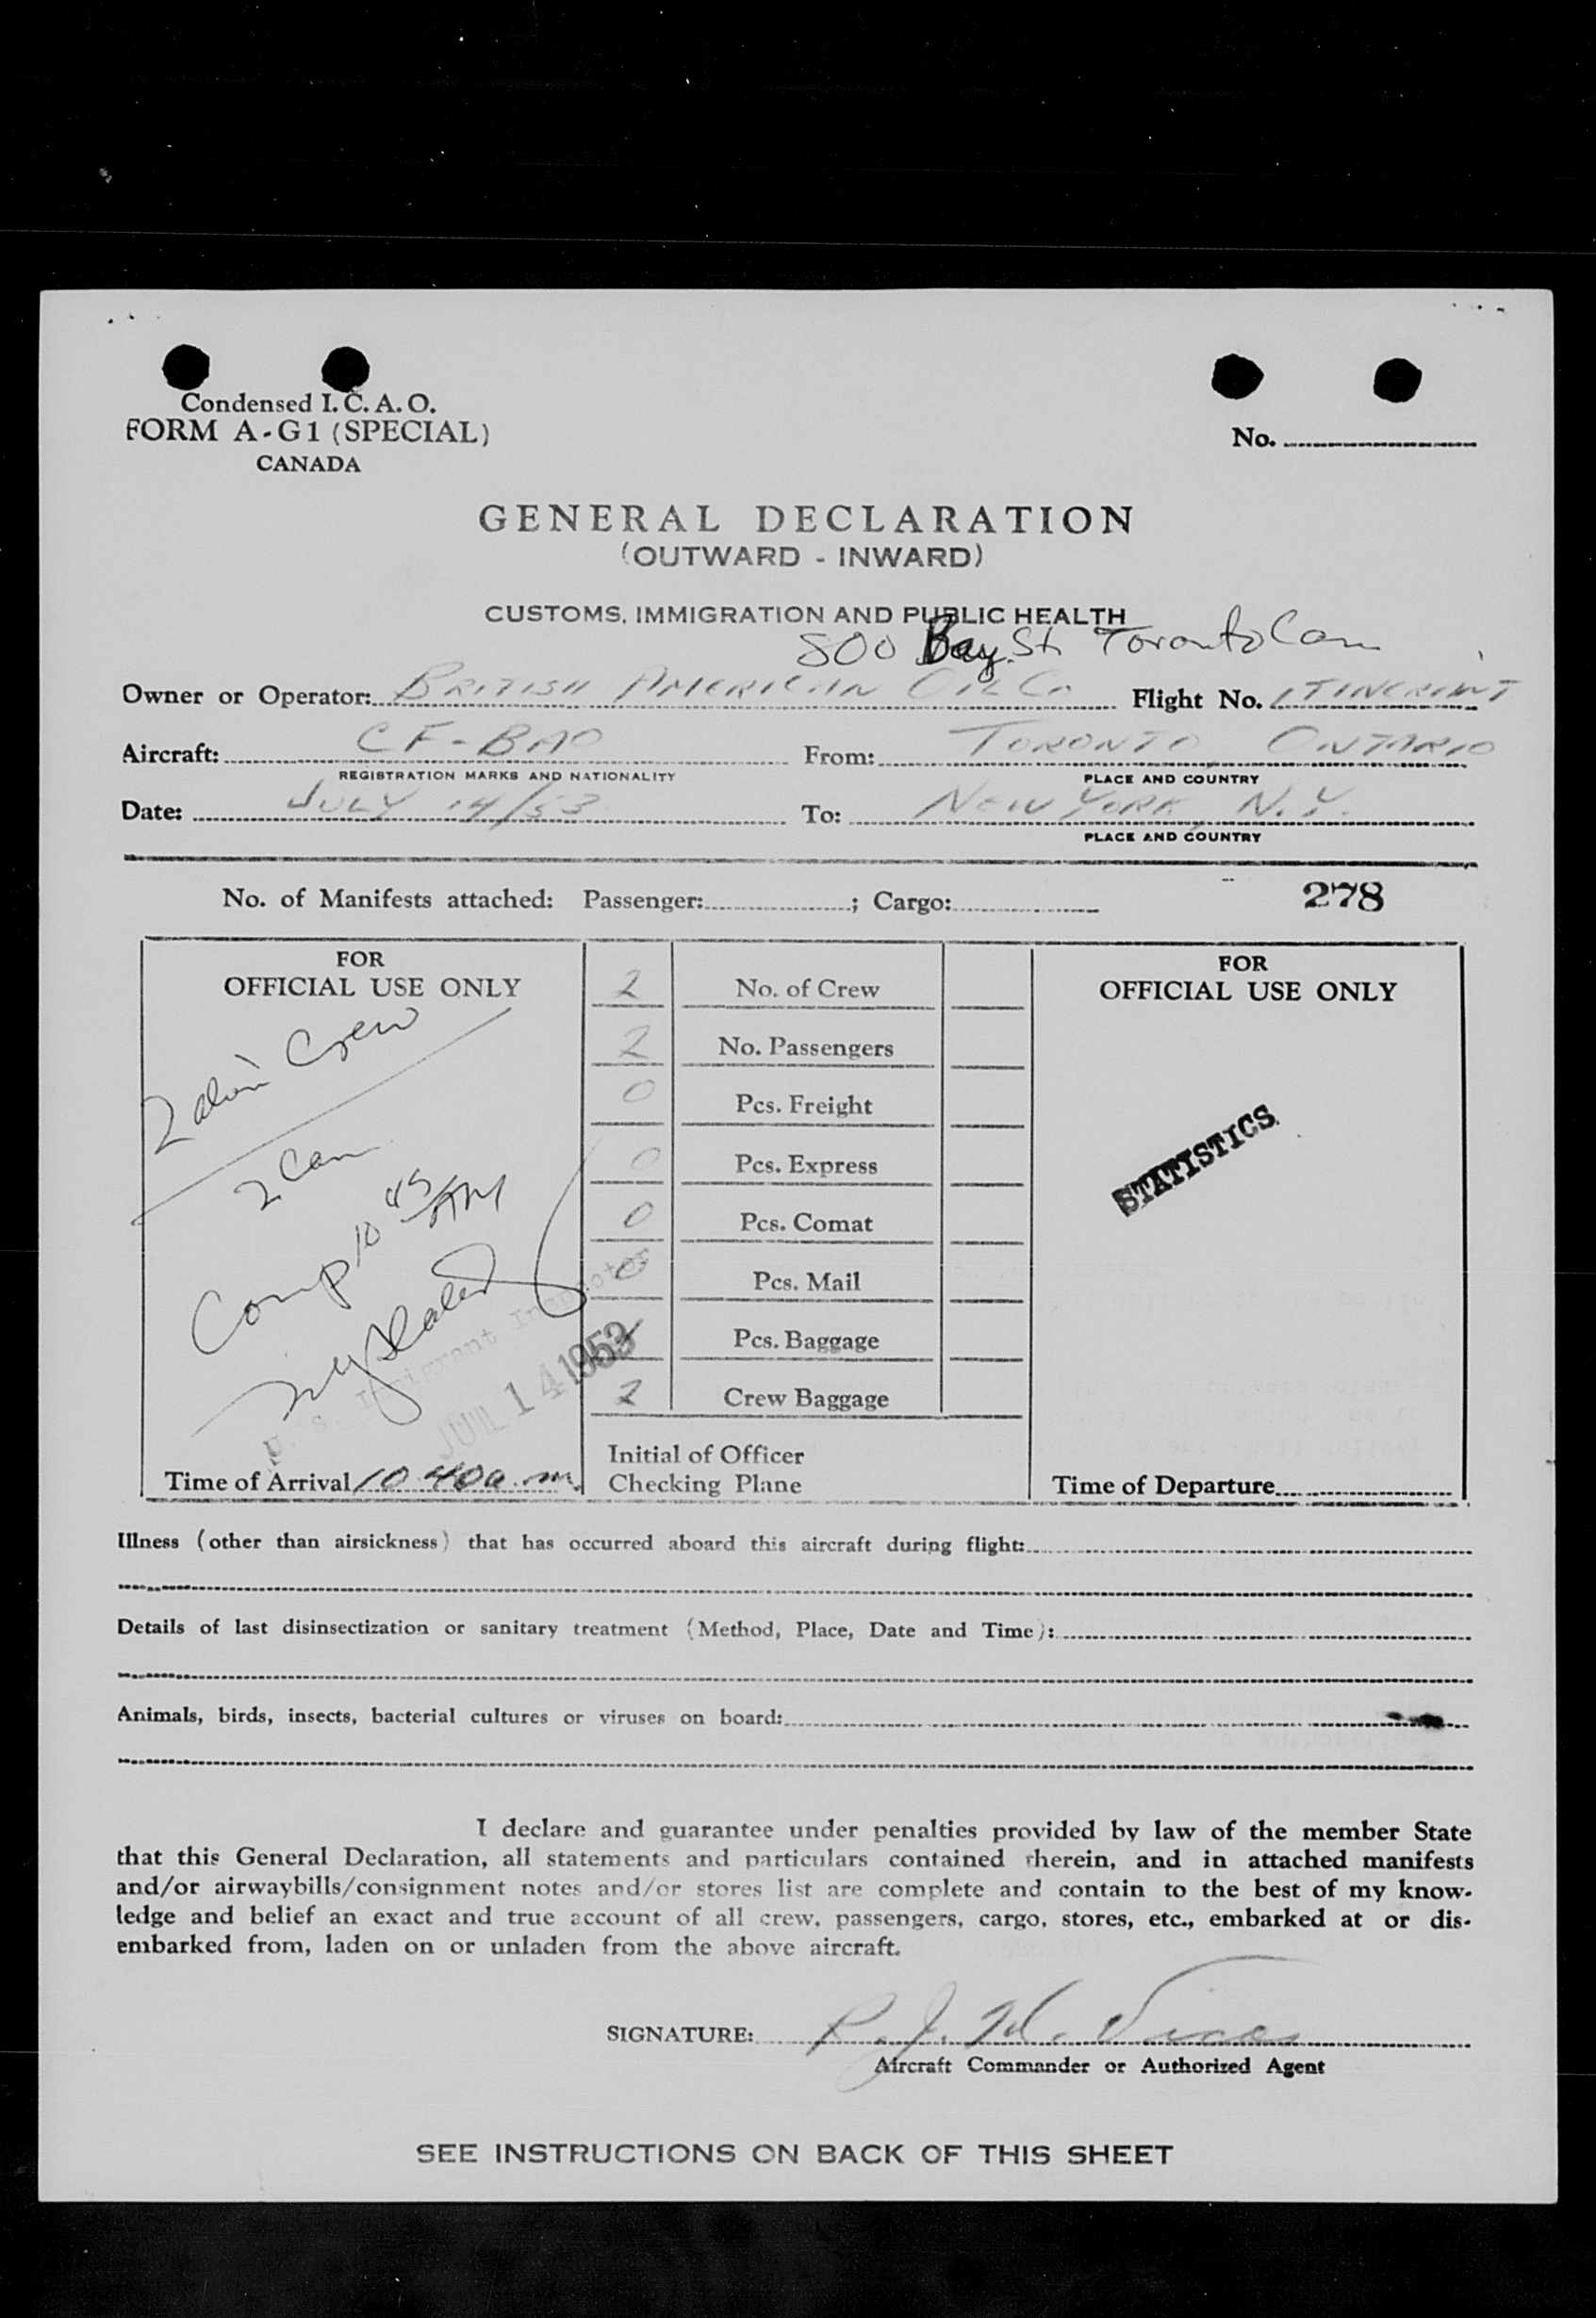 Condensed I.C.A.O.
FORM A-G1 (SPECIAL)
CANADA
No.
GENERAL DECLARATION
(OUTWARD - INWARD)
CUSTOMS, IMMIGRATION AND PUBLIC HEALTH
800 Bay St Toronto Can
Owner or Operator: BRITISH AMERICAN OIL Co Flight No. ITINERANT
Aircraft: CF-BAO From: TORONTO, ONTARIO
REGISTRATION MARKS AND NATIONALITY PLACE AND COUNTRY
Date: JULY 14/53 To: NEW YORK, N.Y.
PLACE AND COUNTRY
No. of Manifests attached: Passenger: ; Cargo: 278
FOR
OFFICIAL USE ONLY
2 alien Crew
2 Can
Comp 10 45 AM
U. S. Immigrant Inspector
JUL 14 1953
Time of Arrival 10 40 a.m.
2 No. of Crew
2 No. Passengers
0 Pcs. Freight
0 Pcs. Express
0 Pcs. Comat
0 Pcs. Mail
Pcs. Baggage
2 Crew Baggage
Initial of Officer
Checking Plane
FOR
OFFICIAL USE ONLY
STATISTICS
Time of Departure
Illness (other than airsickness) that has occurred aboard this aircraft during flight:
Details of last disinsectization or sanitary treatment (Method, Place, Date and Time):
Animals, birds, insects, bacterial cultures or viruses on board:
I declare and guarantee under penalties provided by law of the member State
that this General Declaration, all statements and particulars contained therein, and in attached manifests
and/or airwaybills/consignment notes and/or stores list are complete and contain to the best of my know-
ledge and belief an exact and true account of all crew, passengers, cargo, stores, etc., embarked at or dis-
embarked from, laden on or unladen from the above aircraft.
SIGNATURE: R. J.
Aircraft Commander or Authorized Agent
SEE INSTRUCTIONS ON BACK OF THIS SHEET